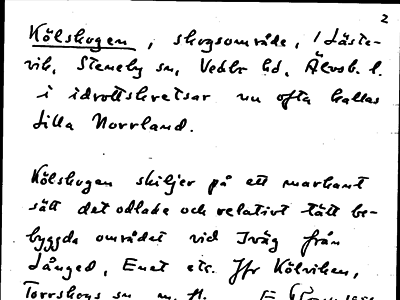 2
Kölskogen, skogsområde, i Läste-
vik, Steneby sn, Vedbo hd, Älvsb. l.
i idrottskretsar nu ofta kallas
Lilla Norrland.
Kölskogen skiljer på ett markant
sätt det odlade och relativt tätt be-
byggda området vid Iväg från
Långed, Enet etc. Jfr Kölviken,
Torrskogs sn m.fl.